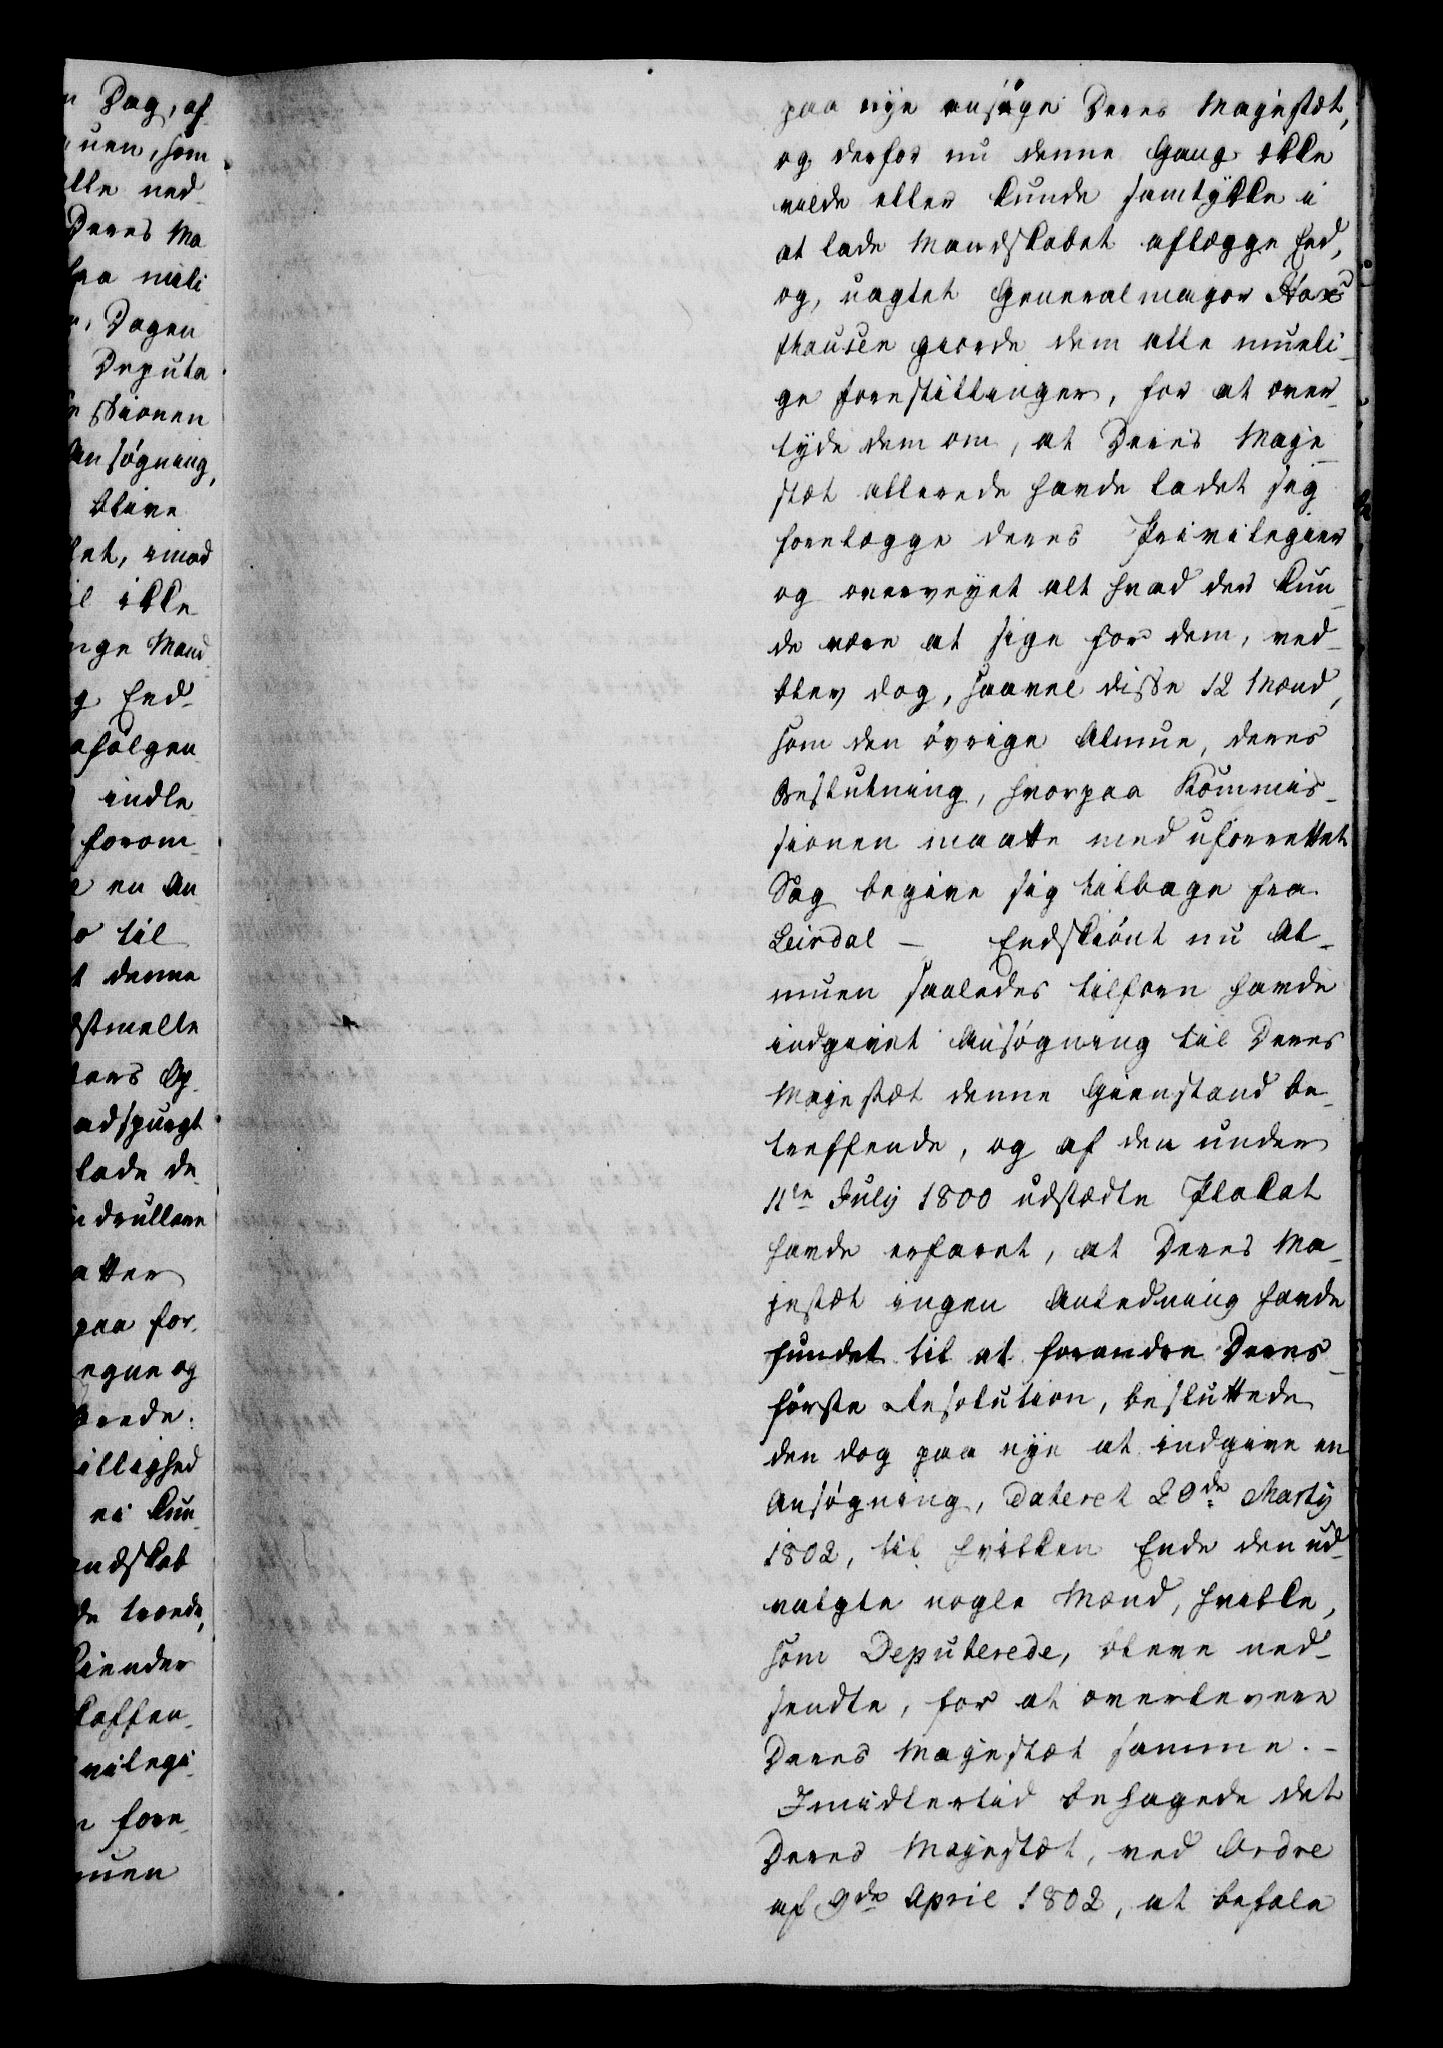 n Dag, af
uen, som
ille ned-
Deres Ma
fra mili
r, Dagen
Deputa
ssionen
Ansøgning,
blive
let, imod
il ikke
nge Mand-
g End-
afølgen
indle
forom-
e en An-
o til
t denne
dstmelte
tors Op-
adspurgt
lade de-
n drullere
atter
paa for-
egne og
brede:
illighed
ei kun-
andskab
de træde,
kiender
kaffen-
vilegi-
n fore-
muen
paa nye ansøge Deres Majestæt,
og derfor nu denne Gang ikke
vilde eller kunde samtykke i
at lade Mandskabet aflægge Eed,
og, uagtet Generalmajor Hax
thausen giorde dem alle mueli-
ge forestillinger, for at over-
tyde dem om, at Deres Maje-
stæt allerede havde ladet sig
forelægge deres Privilegier
og overveyet alt hvad der kun-
de være at sige for dem, ved-
blev dog, saavel disse 12 Mænd,
som den øvrige Almue, deres
Beslutning, hvorpaa Kommis-
sionen maatte med uforrettet
Sag begive sig tilbage fra
Leirdal — Endskiønt nu Al-
muen saaledes tilforn havde
indgivet Ansøgning til Deres
Majestæt denne Gienstand be-
treffende, og af den under
11te July 1800 udstædte Plakat
havde erfaret, at Deres Ma-
jestæt ingen Anledning havde
fundet til at forandre Deres
første Resolution, besluttede
den dog paa nye at indgive en
Ansøgning, dateret 20de Martij
1802, til hvilken Ende den ud-
valgte nogle Mænd, hvilke,
som Deputerede, bleve ned-
sendte, for at overlevere
Deres Majestæt samme. –
Imidlertid behagede det
Deres Majestæt, ved Ordre
af 9de April 1802, at befale